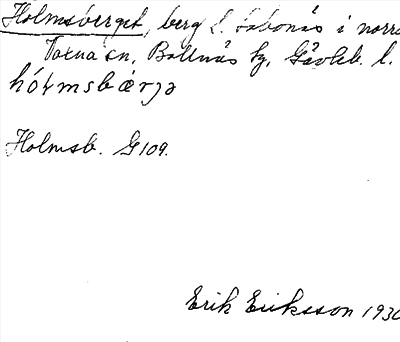 Holmsberget, berg i. Labonäs i norra
Voxna sn, Bollnäs tg, Gävleb. l.
hólmsbærjə
Holmsb. G109.
Erik Eriksson 1930